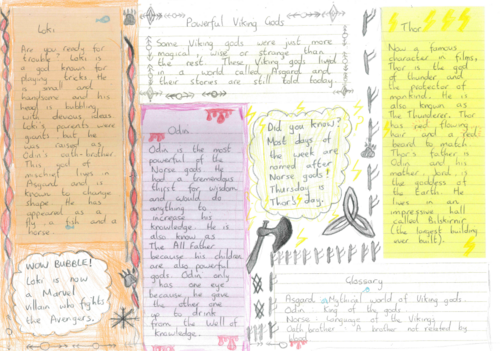 Loki
Are you ready for
trouble? Loki is
a god known for
playing tricks. He
is small and
handsome and his
head is bubbling
with devious ideas.
Loki's parents were
giants but he
was raised as
Odin's oath-brother.
This god of
mischief lives in
Asgard and is
known to change
shape. He has
appeared as a
fly, a fish and a
horse.
WOW BUBBLE!
Loki is now
a Marvel
villan who fights
the Avengers.
Powerful Viking Gods
Some Viking gods were just more
magical, wise or strange than
the rest. These Viking gods lived
in a world called Asgard and
their stories are still told today.
Odin
Odin is the most
powerful of the
Norse gods. He
had a tremendous
thirst for wisdom
and would do
anything to
increase his
knowledge. He is
also know as
The All Father
because his children
are also powerful
gods. Odin only
has one eye
because he gave
the other one
up to drink
from the Well of
Knowledge.
Did you know?
Most days of
the week are
named after
Norse gods!
Thursday is
Thor's day.
Thor
Now a famous
character in films,
Thor is the god
of thunder and
the protector of
mankind. He is
also known as
The Thunderer. Thor
has red flowing
hair and a red
beard to match.
Thor's father is
Odin and his
mother, Jord is
the goddess of
the Earth. He
lives in an
impressive hall
called Bilskirnir
(the largest building
ever built).
Glossary
Asgard Mythical world of Viking gods
Odin king of the gods
Norse language of the Vikings
Oath brother A brother not related by
blood